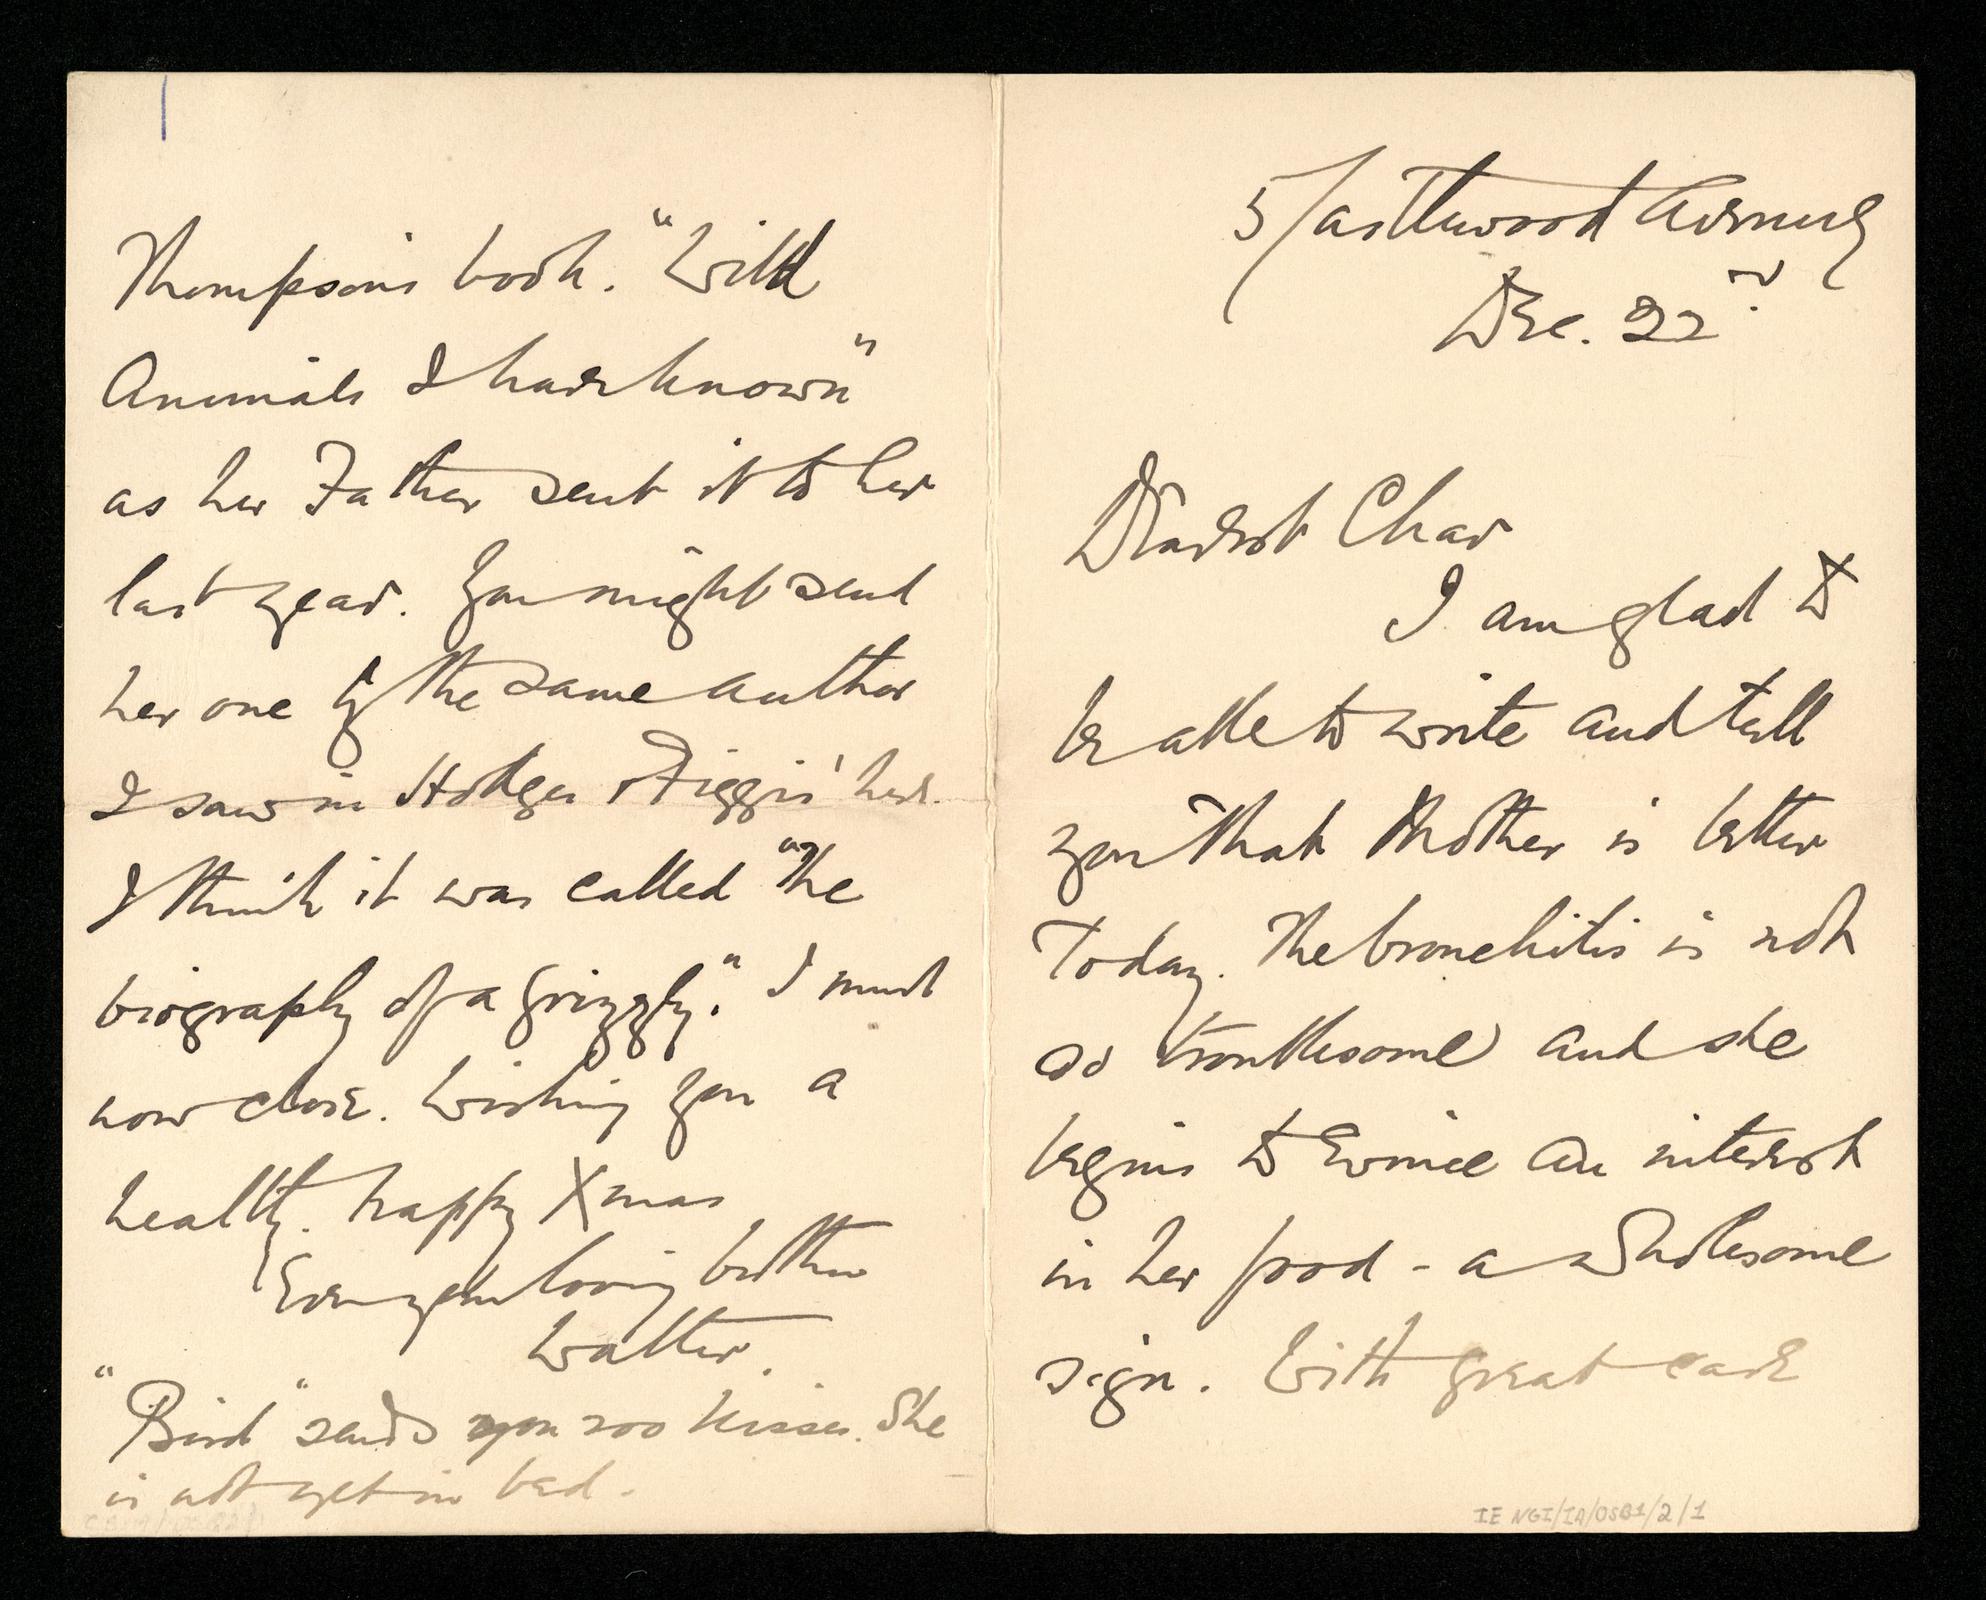 5 Castlewood Avenue
Dec. 22nd
Dearest Char
I am glad to
be able to write and tell
you that Mother is better
Today. The bronchitis is not
so troublesome and she
begins to evince an interest
in her food - a wholesome
sign. With great care
IE NGI/IA/OSB1/2/1
Thompson's book. "Wild
Animals I have known"
as her Father sent it to her
last year. You might send
her one by the same author
I saw in Hodges & Figgis' here.
I think it was called "The
biography of a grizzly." I must
now close. Wishing you a
healthy. happy Xmas
Ever your loving brother
Walter.
"Bird" sends you 200 kisses. She
is not yet in bed.